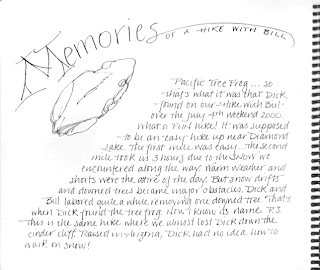 Memories OF A HIKE WITH BILL
Pacific Tree Frog... so
that's what it was that Dick
found on our Hike with Bill
over the July 4th weekend 2000.
What a FUN hike! It was supposed
to be an easy hike up near Diamond
Lake. The first mile was easy... The second
mile took us 3 hours due to the snow we
encountered along the way. Warm weather and
shorts were the attire of the day. But snow drifts
and downed trees became major obstacles. Dick and
Bill labored quite a while removing one downed tree. That's
when Dick found the tree frog. Now I know its name. P.S.
This is the same hike where we almost lost Dick down the
cinder cliff. Raised in Virginia, Dick had no idea how to
walk on snow!